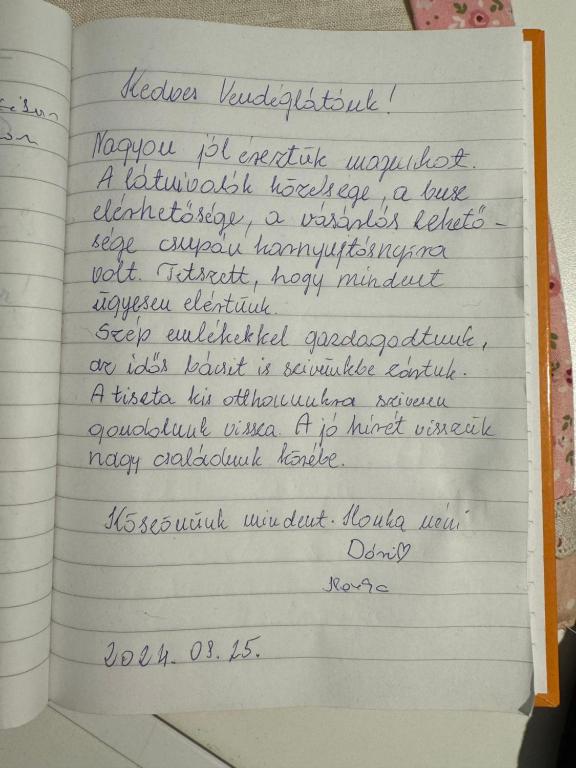 Kedves Vendéglátónk!
Nagyon jól éreztük magunkat.
A látnivalók közelsége, a busz
elérhetősége, a vásárlás lehető-
sége csupán karnyújtásnyira
volt. Tetszett, hogy mindent
ügyesen elértünk.
Szép emlékekkel gazdagodtunk,
az idős bácsit is szivünkbe zártuk.
A tiszta kis otthonunkra szivesen
gondolunk vissza. A jó hírét visszük
nagy családunk körébe.
Köszönünk mindent. Ilonka néni
Dóri♡
2024. 08. 25.